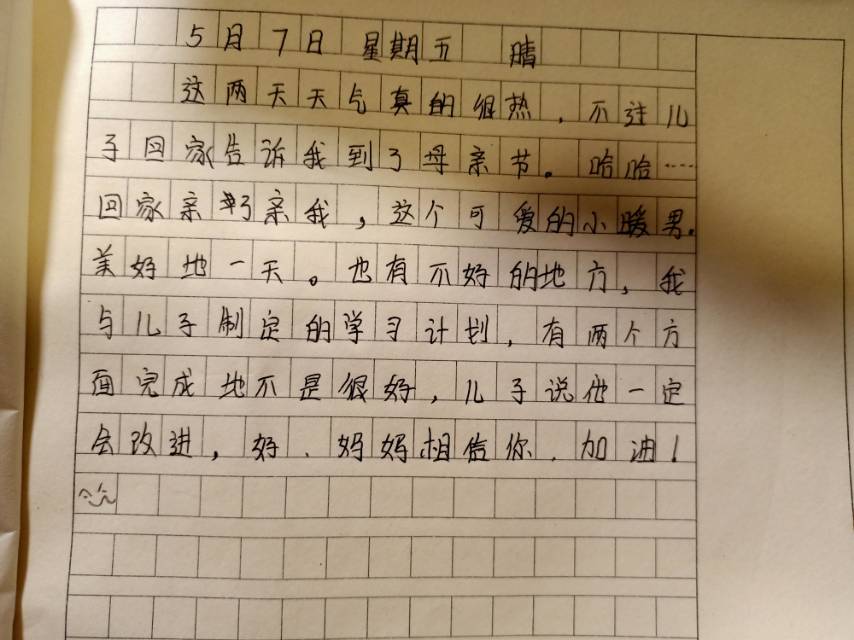 5月7日 星期五 晴
这两天天气真的很热,不过儿
子回家告诉我到了母亲节。哈哈……
回家亲了亲我,这个可爱的小暖男。
美好地一天。也有不好的地方,我
与儿子制定的学习计划,有两个方
面完成地不是很好,儿子说他一定
会改进,好、妈妈相信你、加油!